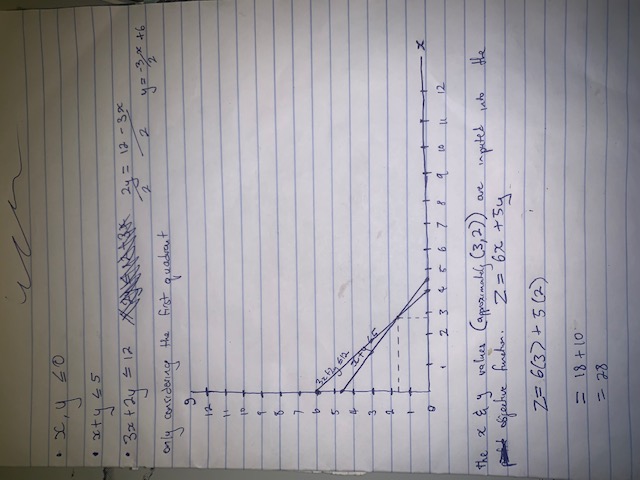 • x, y ≤ 0
• x + y ≤ 5
• 3x + 2y ≤ 12 2y/2 = 12 - 3x/2 y = -3/2 x + 6
only considering the first quadrant
y
12
11
10
9
8
7
6 3x+2y≤12
5
4 x+y≤5
3
2
1
0 1 2 3 4 5 6 7 8 9 10 11 12 x
The x & y values (approximately (3,2)) are inputed into the
objective function. Z = 6x + 5y
Z = 6(3) + 5(2)
= 18 + 10
= 28